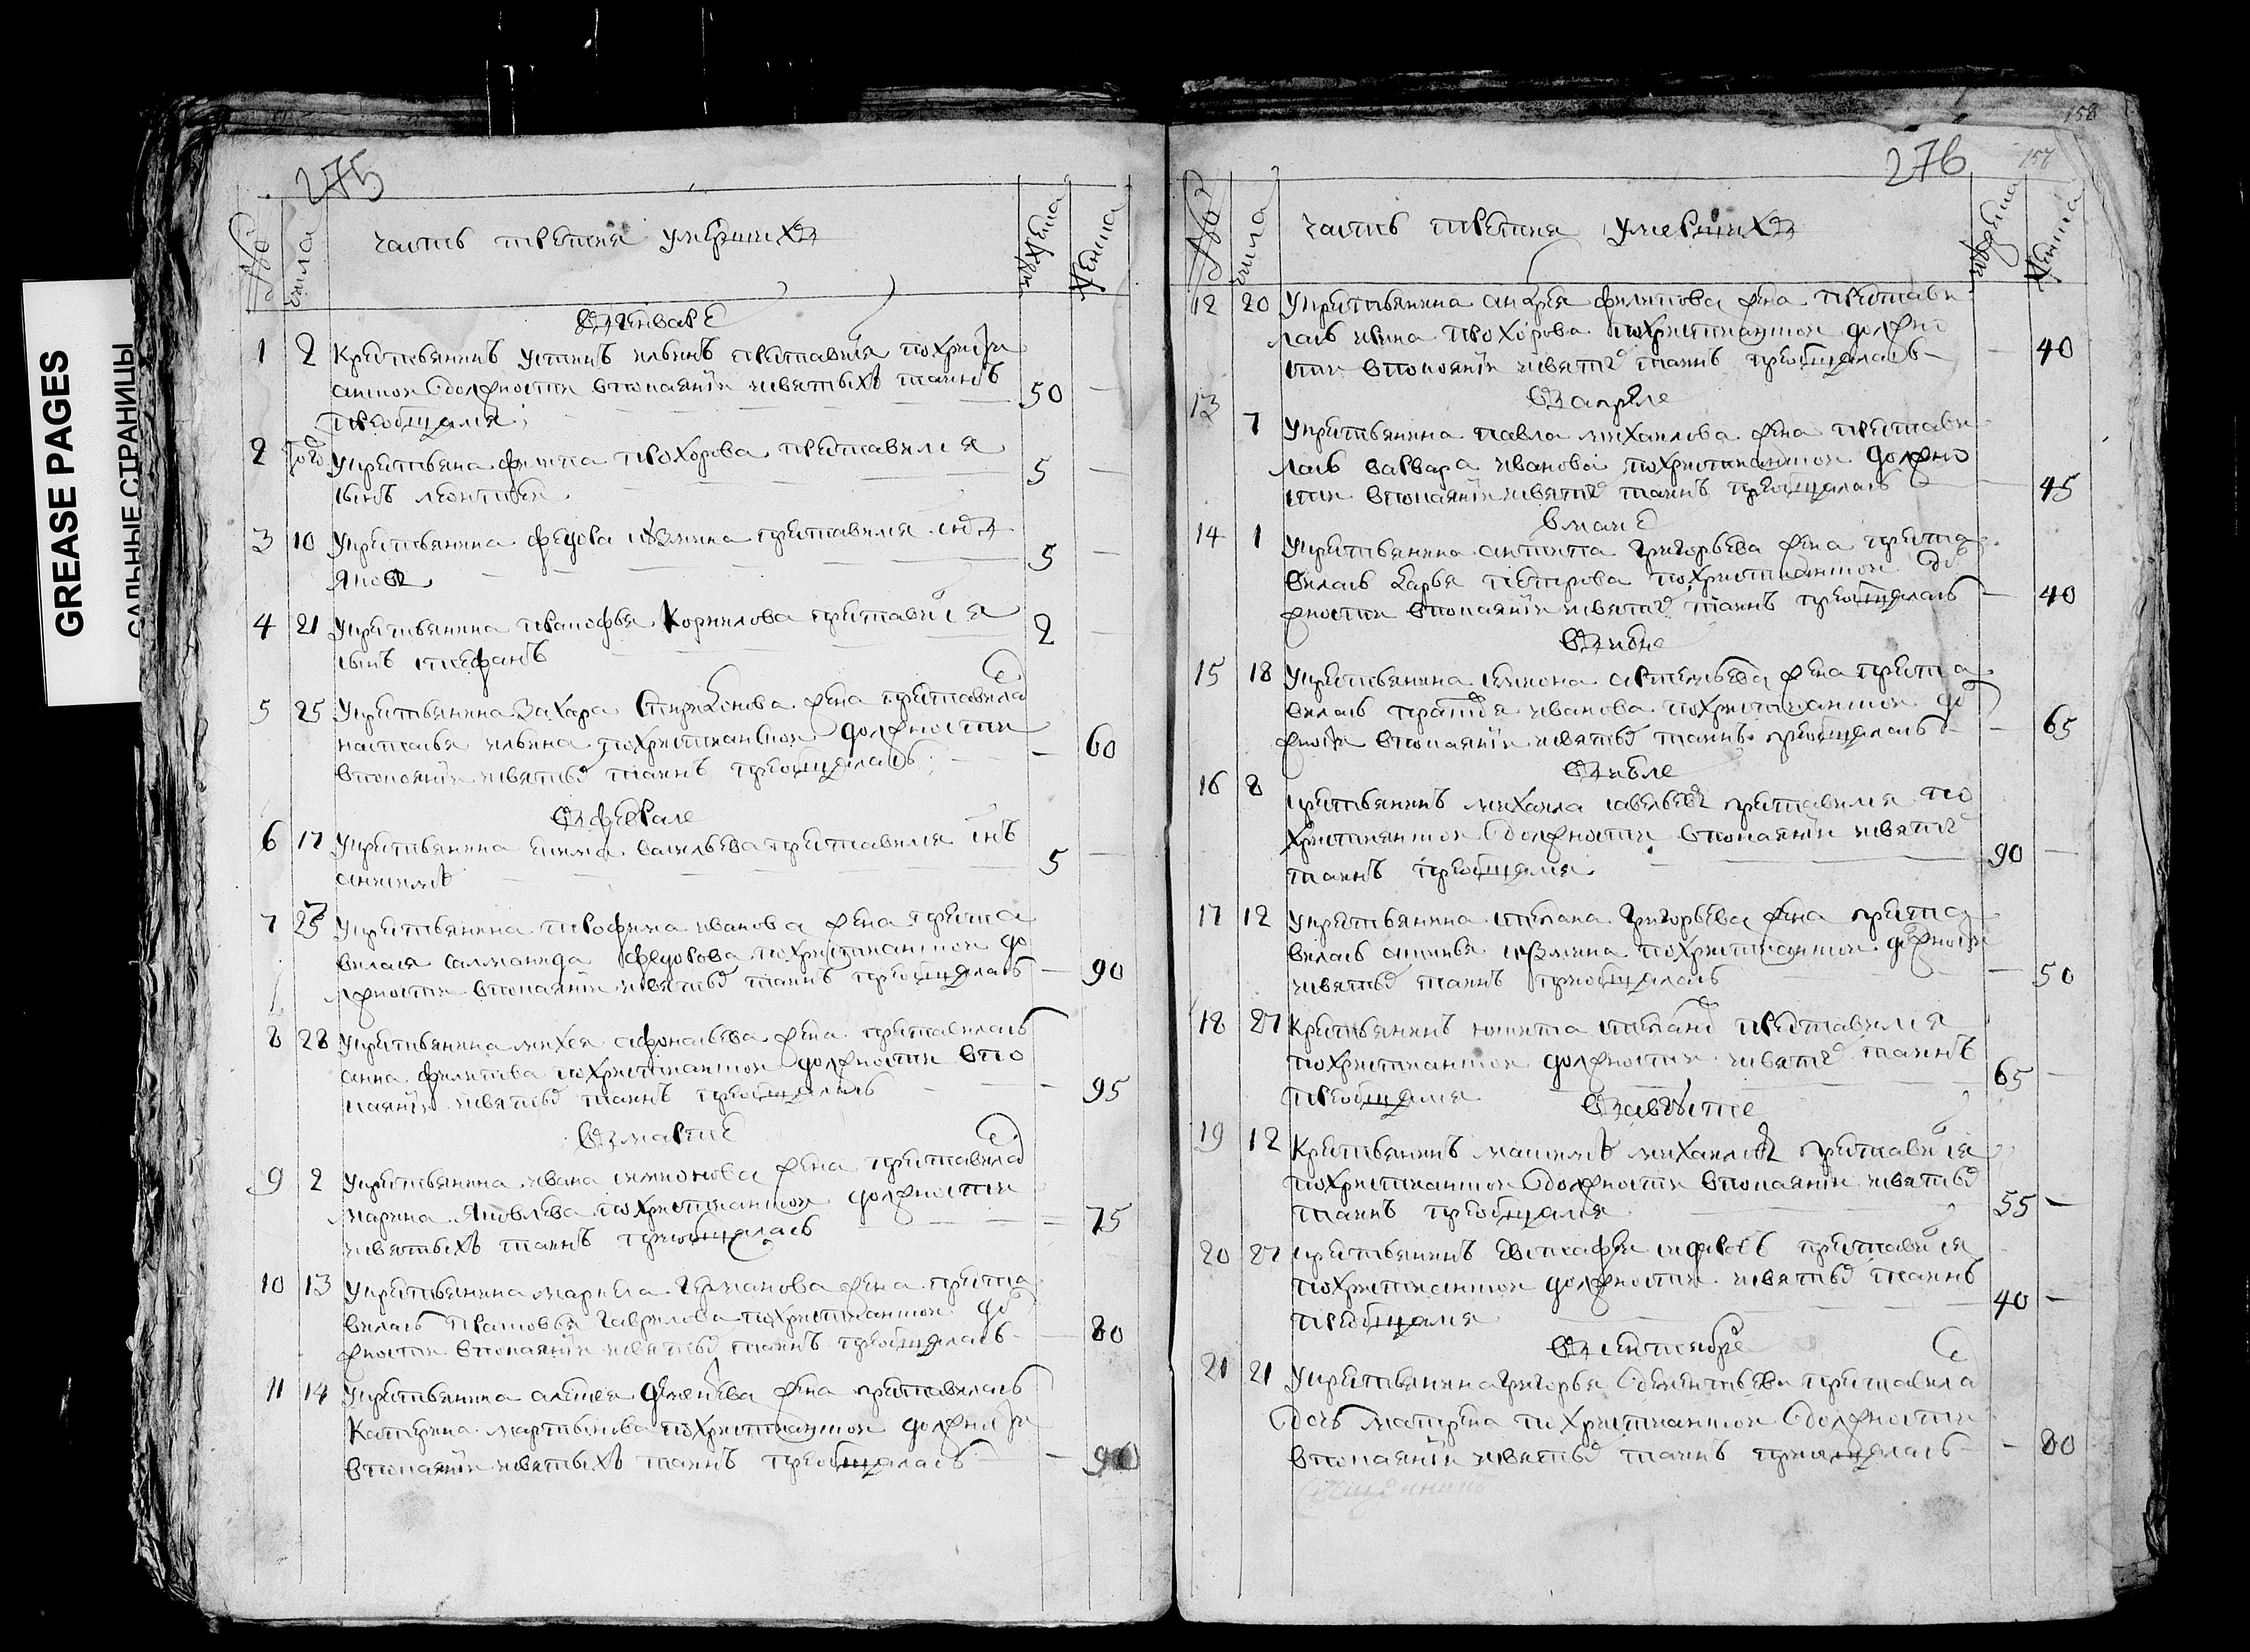 GREASE PAGES
САЛЬНЫЕ СТРАНИЦЫ
275
№
числа
часть третия умершихъ
мужеска
женска
въ генваре
1 2 Крестьянинъ Устинъ Ильинъ преставился по христи
анской должности в покаянїи и святыхъ таинъ 50 —
преобщался;
2 того У крестьяна Филипа Прохорова преставился
сынъ Леонтией 5 —
3 10 У крестьянина Федора Козмина преставился сынъ
Яковъ 5 —
4 21 У крестьянина Пракофья Корнилова преставился 2 —
сынъ Стефанъ
5 25 У крестьянина Захара Спиридонова жена преставилас
Наталья Ильина по христианской должности — 60
в покоянїи и святых таинъ преобщалась;
въ феврале
6 17 У крестьянина Екима Васильева преставился снъ 5 —
Анисимъ
7 25 У крестьянина Трофима Иванова жена преста
вилася Саламанида Федорова по христианской до
лжности в покаянїи и святых таинъ преобщалась — 90
8 28 У крестьянина Михея Афонасьева жена преставилась
Анна Филипова по христианской должности в по
каянїи и святых таинъ преобщалась — 95
въ марте
9 2 У крестьянина Ивана Симионова жена преставилас
Марина Яковлева по христианской должности
и святыхъ таинъ преобщалась — 75
10 13 У крестьянина Маркела Германова жена преста
вилась Прасковья Гаврилова по христианской до
жности в покаянїи и святых таинъ преобщалась — 80
11 14 У крестьянина Алексея жена преставилась
Катерина Мартынова по христианской должности
в покаянїи и святыхъ таинъ преобщалась — 90
158
157
276
№
числа
часть третия умершихъ
мужеска
женска
12 20 У крестьянина Андрея Филипова жена престави
лась Ирина Прохорова по христианской должно
сти в покоянїи и святых таинъ преобщалась — 40
въ апреле
13 7 У крестьянина Павла Михаилова жена престави
лась Варвара Иванова по христианской должно
сти в покаянїи и святых таинъ преобщалась — 45
в мае
14 1 У крестьянина Антипа Григорьева жена преста
вилась Дарья Петрова по христианской до
жности в покоянїи и святых таинъ преобщалась — 40
въ июне
15 18 У крестьянина Симиона Арт жена преста
вилась Иванова по христианской до
жности в покаянїи и святых таинъ преобщалась — 65
въ июле
16 8 Крестьянинъ Михаила Савельевъ преставился по
христианской должности в покаянїи и святых 90 —
таинъ преобщался
17 12 У крестьянина Степана Григорьева жена преста
вилась Аксинья Козмина по христианской должности
и святых таинъ преобщалась — 50
18 27 Крестьянинъ Никита Степанов преставился
по христианской должности и святых таинъ
преобщался 65 —
въ августе
19 12 Крестьянинъ Максимъ Михаиловъ преставился
по христианской должности в покаянїи и святых
таинъ преобщался 55 —
20 27 Крестьянинъ Евстафеи преставился
по христианской должности и святых таинъ 40 —
преобщался
въ сентябре
21 21 У крестьянина Григорья Дементьева преставилас
дочь Матрена по христианской должности
в покаянїи и святых таинъ преобщалась — 80